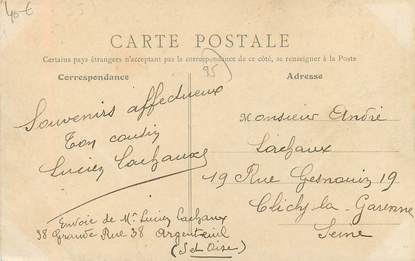 40€
CARTE POSTALE
Certains pays étrangers n'acceptant pas la correspondance de ce côté, se renseigner à la Poste
Correspondance
95
Adresse
Souvenirs affectueux
Ton cousin
Lucien Lachaux
Envoie de Mr Lucien Lachaux
38 Grande Rue 38 Argenteuil
(S et Oise)
Monsieur André
Lachaux
19 Rue Gesnouin 19
Clichy-la-Garenne
Seine